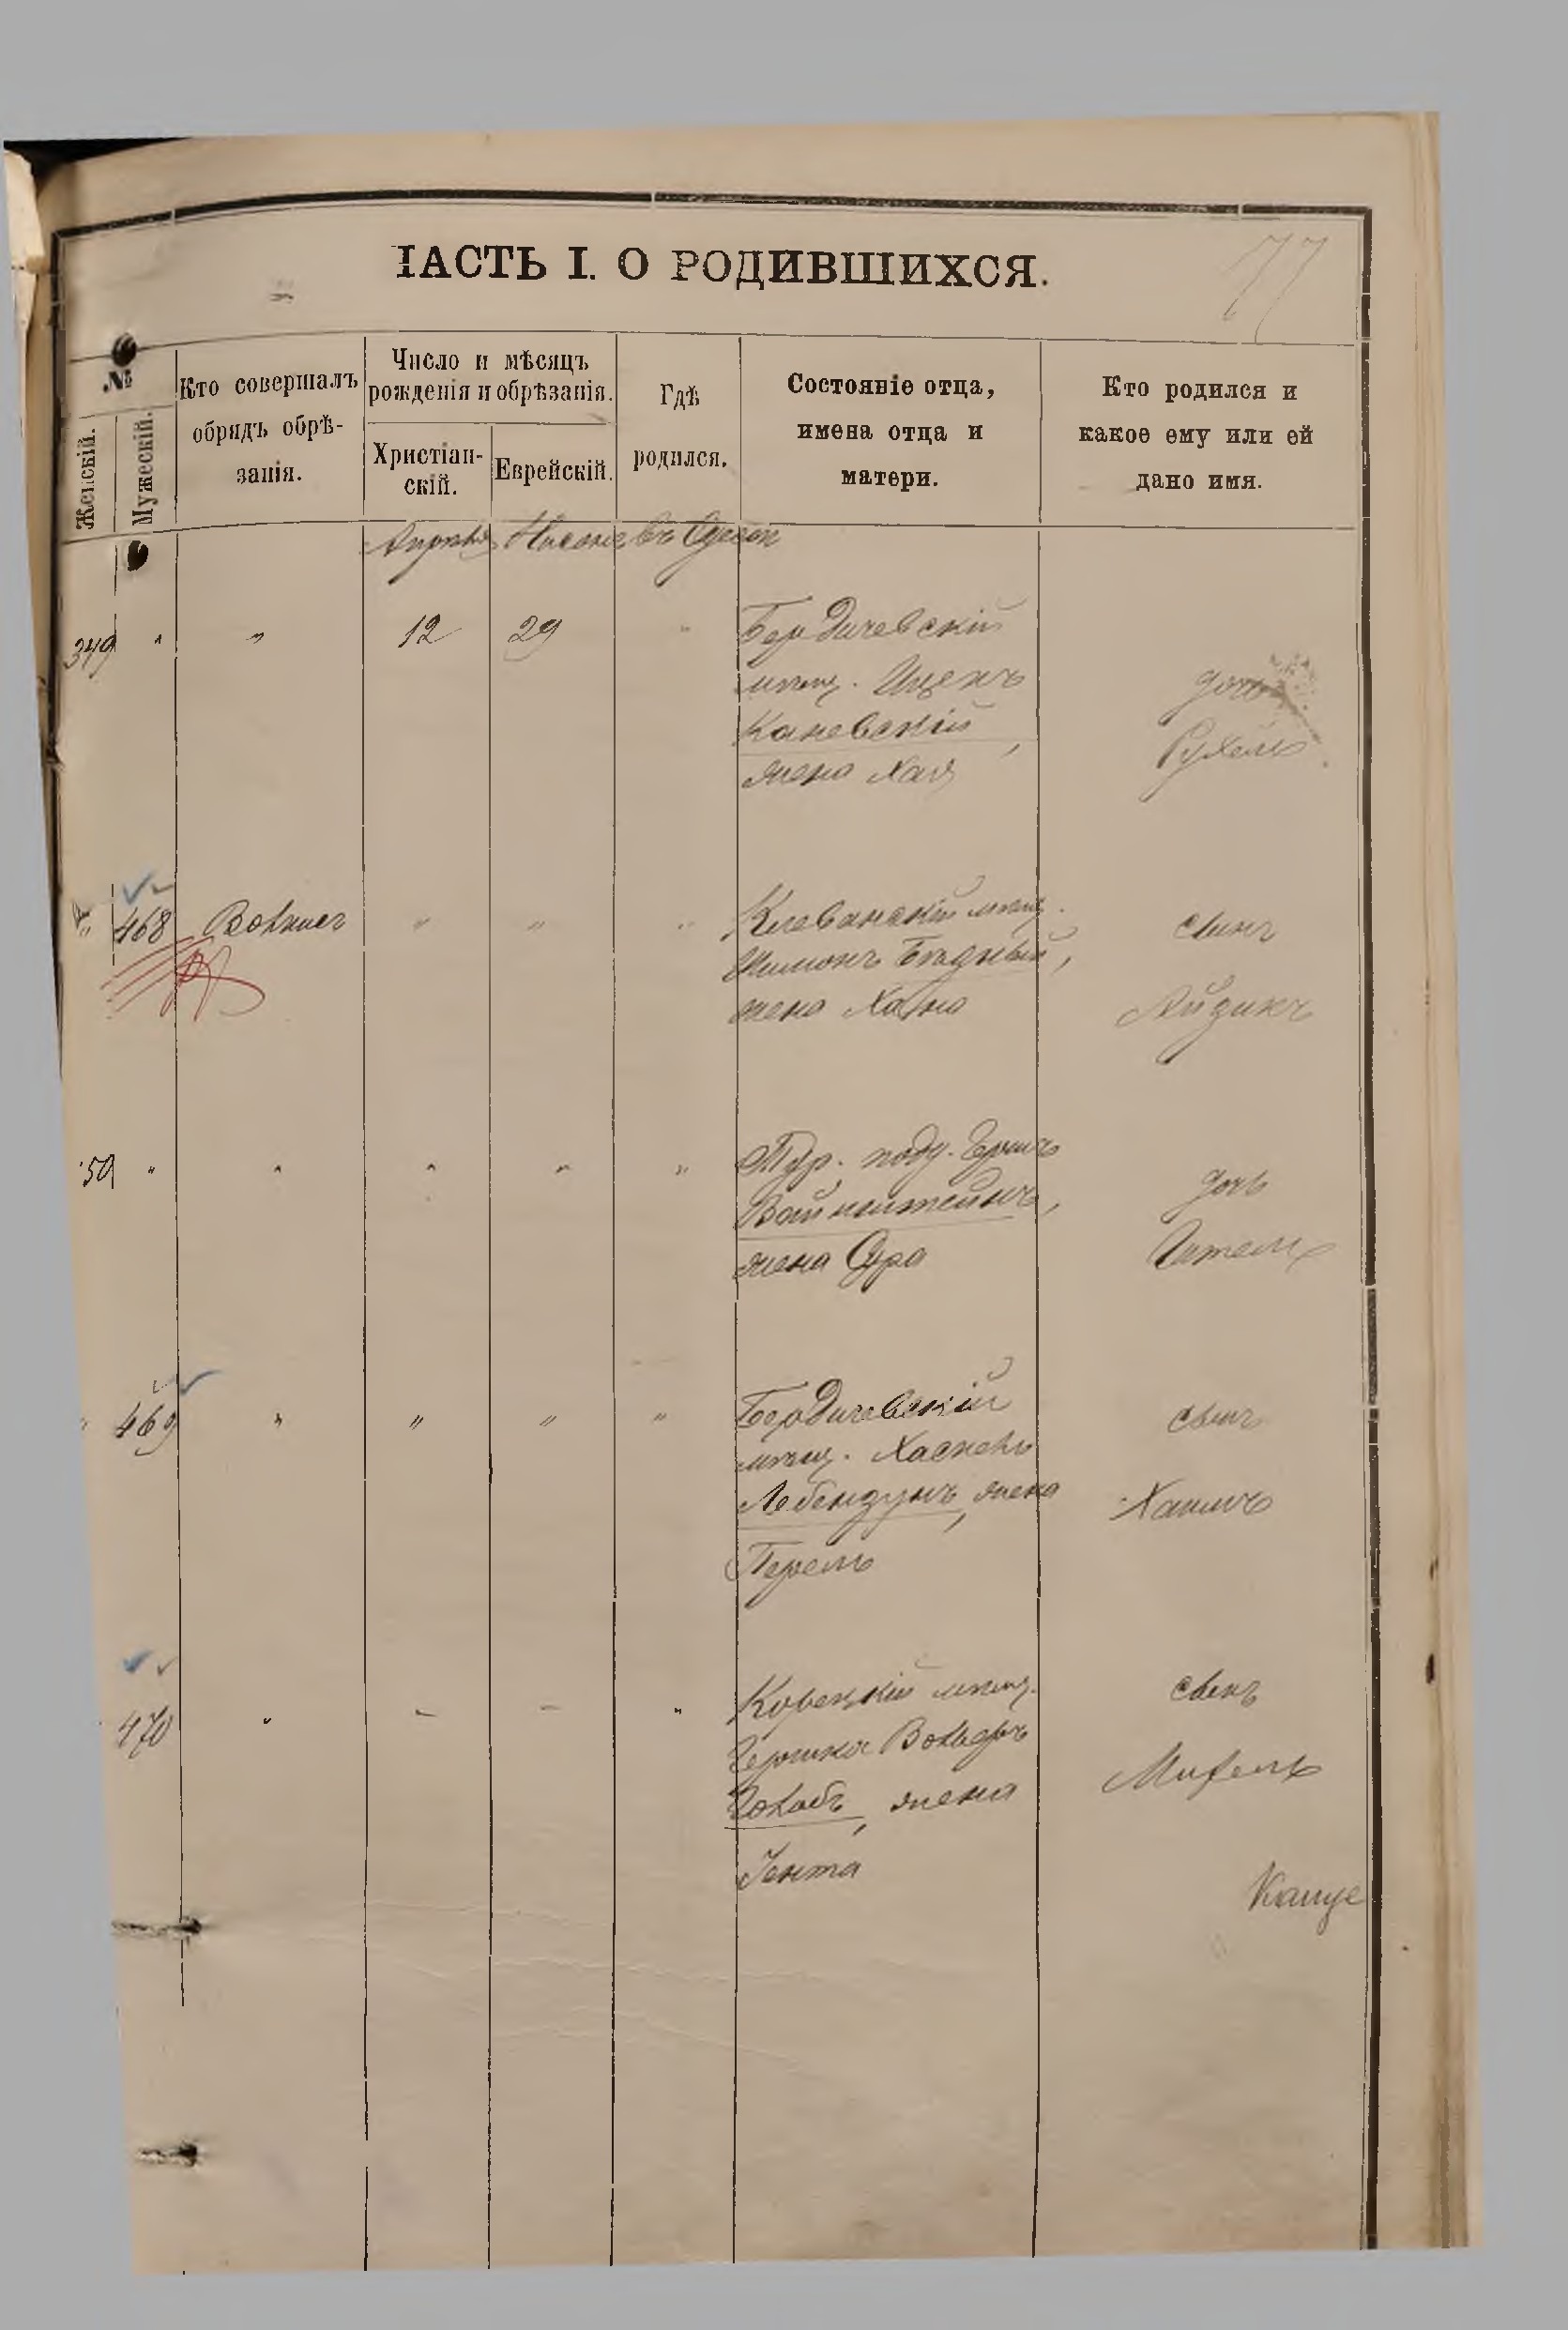 ЧАСТЬ I. О РОДИВШИХСЯ.
77
№
Женскій.
Мужескій.
Кто совершалъ
обрядъ обрѣ-
занія.
Число и мѣсяцъ
рожденія и обрѣзанія.
Христіан-
скій.
Еврейскій.
Гдѣ
родился.
Состояніе отца,
имена отца и
матери.
Кто родился и
какое ему или ей
дано имя.
Апрѣль Нисонъ въ Одессѣ
349 " " 12 29 "
Бердичевскій
мѣщ. Ицекъ
Каневскій,
жена Хая
дочь
Рухель
" 468 " " "
Клеванскій мѣщ.
Шимонъ Бѣдный,
жена Хана
сынъ
Айзикъ
50 " " " " "
Тур. подд. Гершъ
Вайнштейнъ,
жена Сура
дочь
Гитель
" 469 " " " "
Бердичевскій
мѣщ. Хаскель
Лебензунъ, жена
Перель
сынъ
Хаимъ
470 " " " "
Корецкій мѣщ.
Гершка Вольфъ
Гольдъ, жена
Іента
сынъ